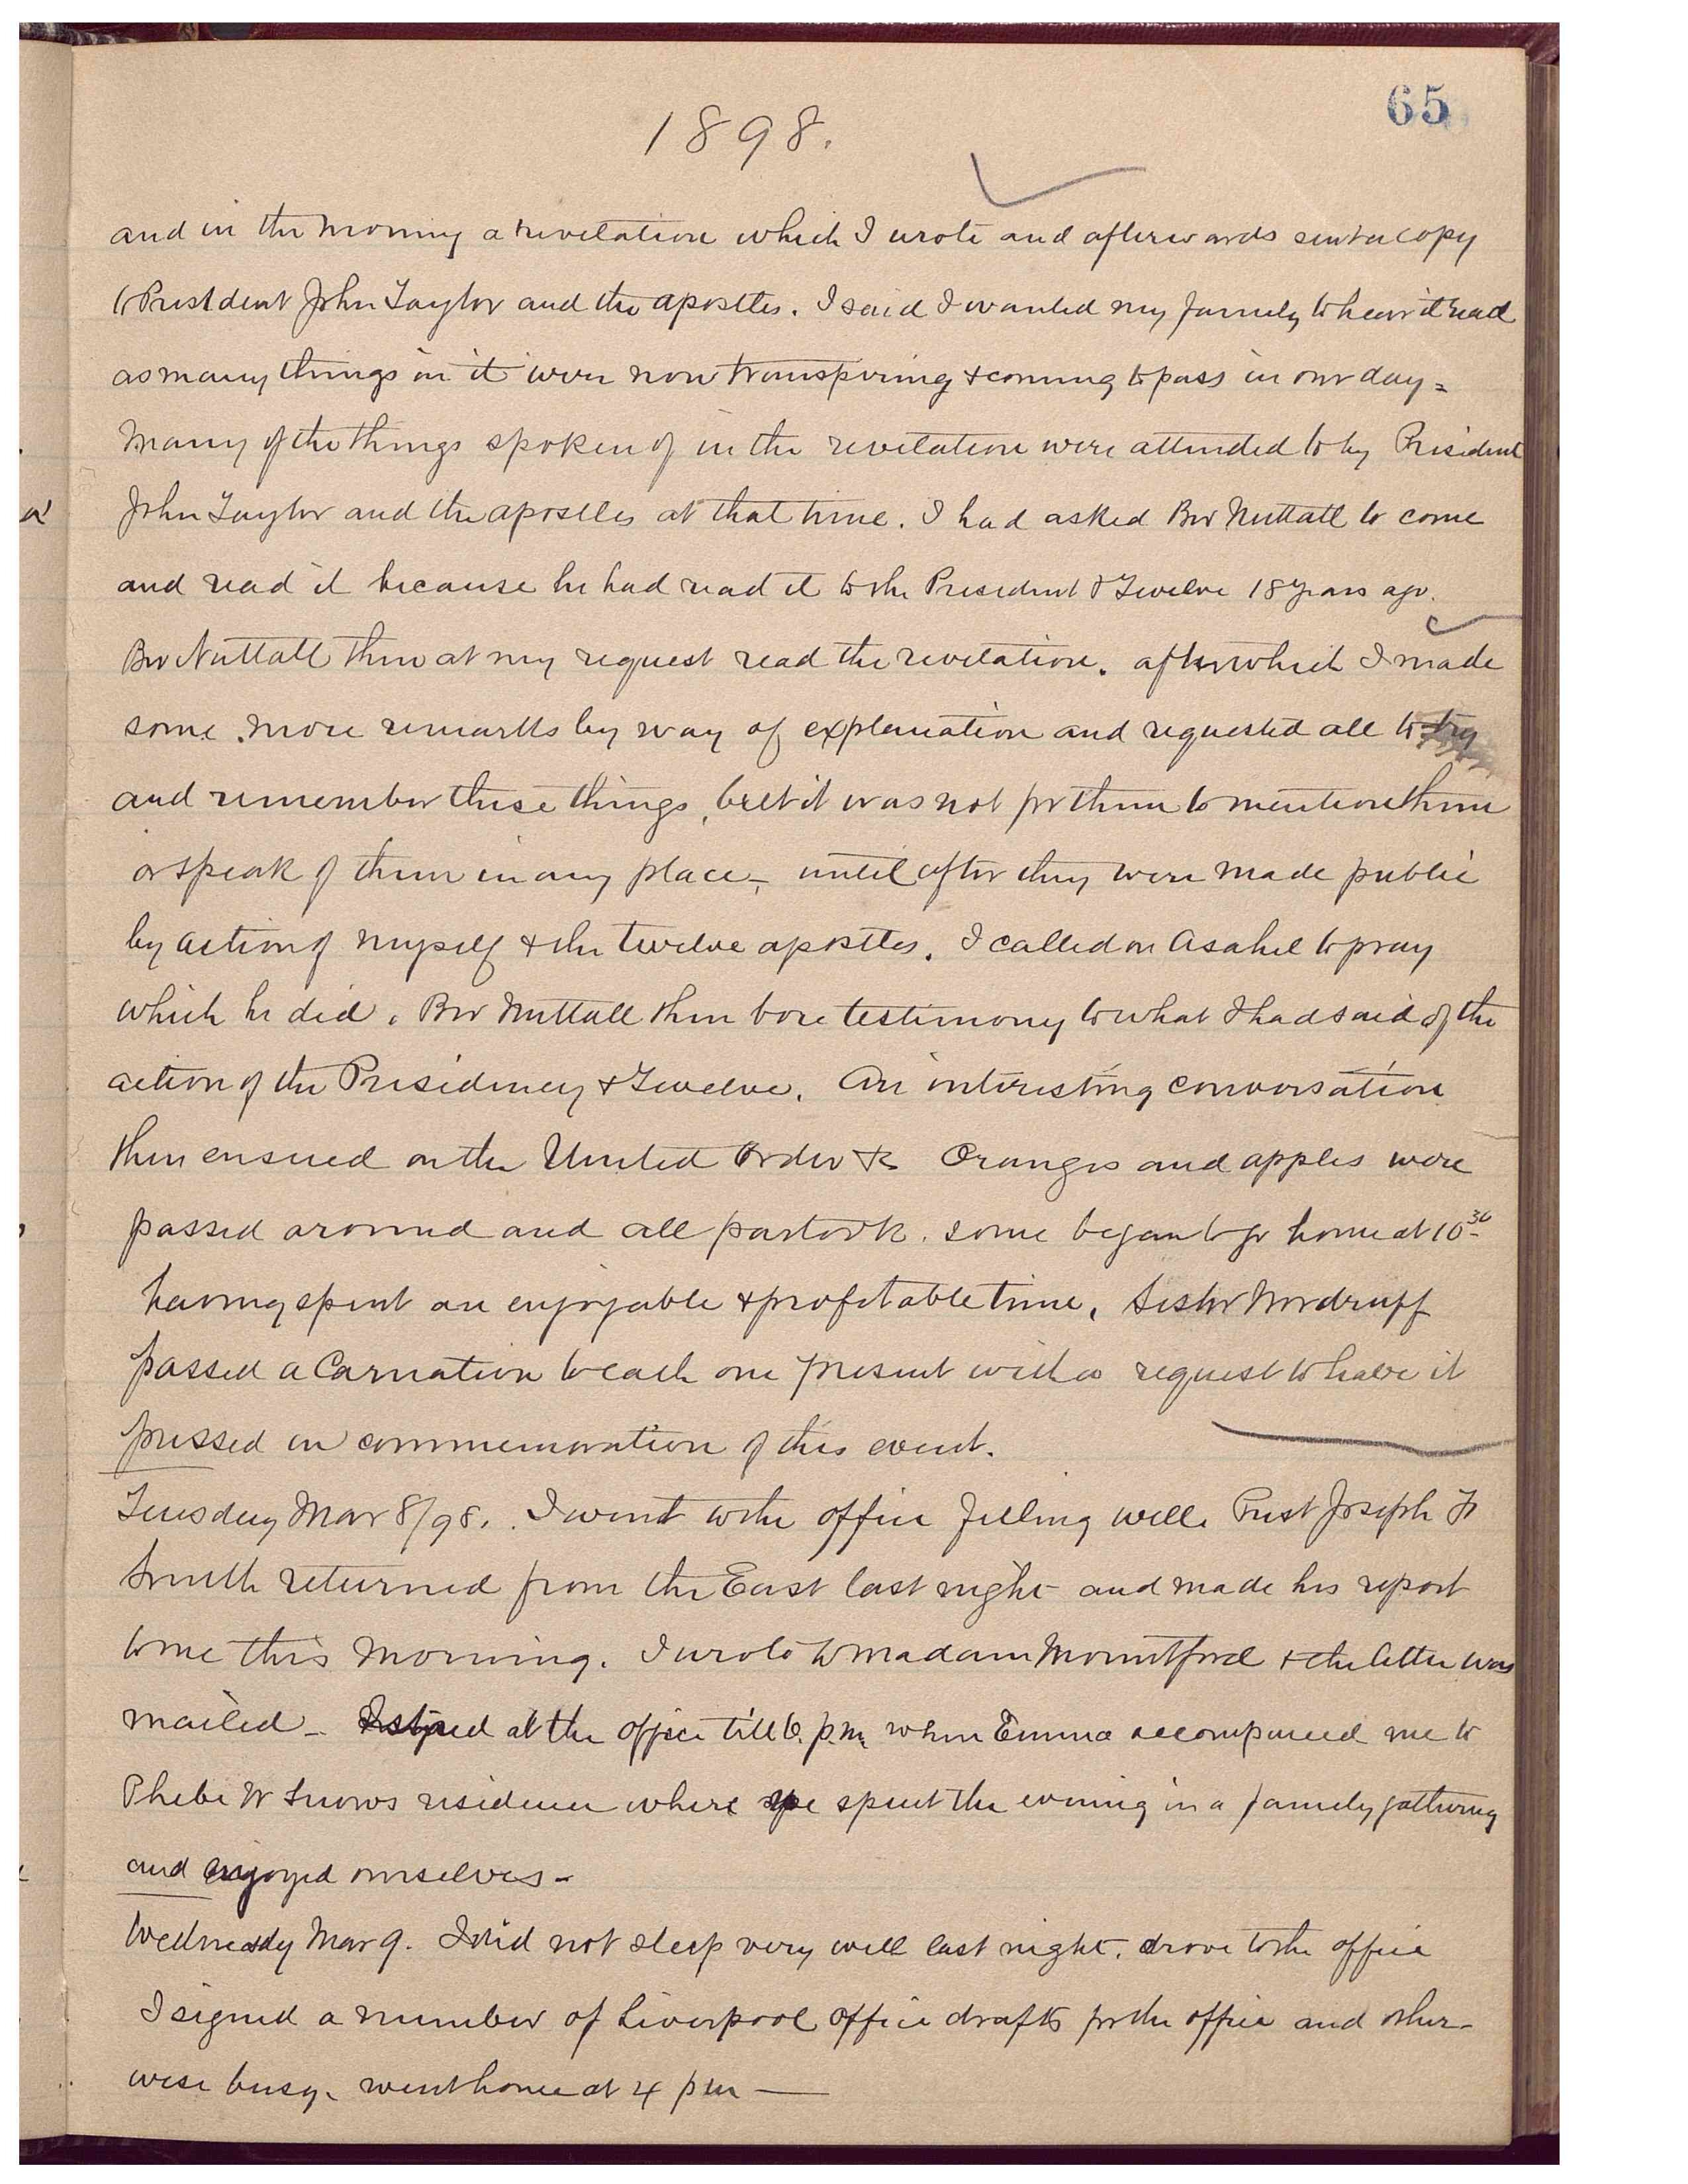 65
1898.
and in the morning a revelation which I wrote and afterwards sent a copy
to President John Taylor and the apostles. I said I wanted my family to hear it read
as many things in it were now transpiring & coming to pass in our day =
Many of the things spoken of in the revelation were attended to by President
John Taylor and the apostles at that time. I had asked Bro Nuttall to come
and read it because he had read it to the President & Twelve 18 years ago.
Bro Nuttall then at my request read the revelation. after which I made
some more remarks by way of explanation and requested all to try
and remember these things, but it was not for them to mention them
or speak of them in any place, until after they were made public
by action of myself & the twelve apostles. I called on Asahel to pray
which he did. Bro Nuttall then bore testimony to what I had said of the
action of the Presidency & Twelve. An interesting conversation
then ensued on the United Order &c Oranges and apples were
passed around and all partook. some began to go home at 10 30
having spent an enjoyable & profitable time. Sister Woodruff
passed a Carnation to each one present with a request to have it
pressed in commemoration of this event.
Tuesday Mar 8/98. I went to the office feeling well. Prest Joseph F
Smith returned from the East last night and made his report
to me this morning. I wrote to Madam Mountford & the letter was
mailed - I stayed at the office till 6. p.m. when Emma accompanied me to
Phebe W Snows residence where we spent the evening in a family gathering
and enjoyed ourselves -
Wednesdy Mar 9. I did not sleep very well last night. drove to the office
I signed a number of Liverpool office drafts for the office and other-
wise busy. went home at 4 pm —